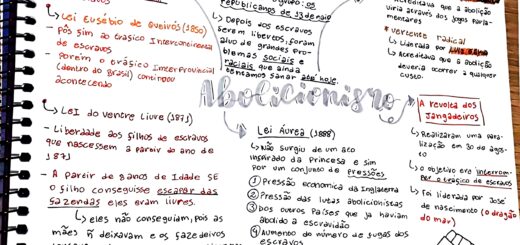 ↳ Lei Eusébio de Queirós (1850)
- Pôs fim ao tráfico Intercontinental
de escravos
- Porém o tráfico Interprovincial
(dentro do Brasil) continuou
acontecendo
↳ LEI do ventre Livre (1871)
- Liberdade aos filhos de escravos
que nascessem a partir do ano de
1871
- A PARTIR de 8 anos de Idade se
o filho conseguisse escapar das
fazendas eles eram livres.
↳ eles não conseguiam, pois as
mães ñ deixavam e os fazedeiros
republicanos de 13 de maio
↳ Depois dos escravos
serem libertos, foram
alvo de grandes pro-
blemas sociais e
raciais que ainda
tentamos sanar até hoje.
Abolicionismo
Lei Áurea (1888)
↳ Não surgiu de um ato
inspirado da Princesa e sim
por um conjunto de pressões.
① Pressão econômica da Inglaterra
② Pressão das lutas abolicionistas
③ Dos outros Países que já haviam
abolido a escravidão
④ Aumento do número de fugas dos
escravos
acreditava que a abolição
viria através dos jogos parla-
mentares
* vertente radical
↳ Liderada por Luís Gama
↳ Acreditava que a abolição
deveria ocorrer a qualquer
custo.
A revolta dos
Jangadeiros
↳ Realizaram uma para-
lização em 30 de agos-
to
↳ o objetivo era interrom-
per o tráfico de escravos
↳ Foi liderada por José
do nascimento (o dragão
do mar)